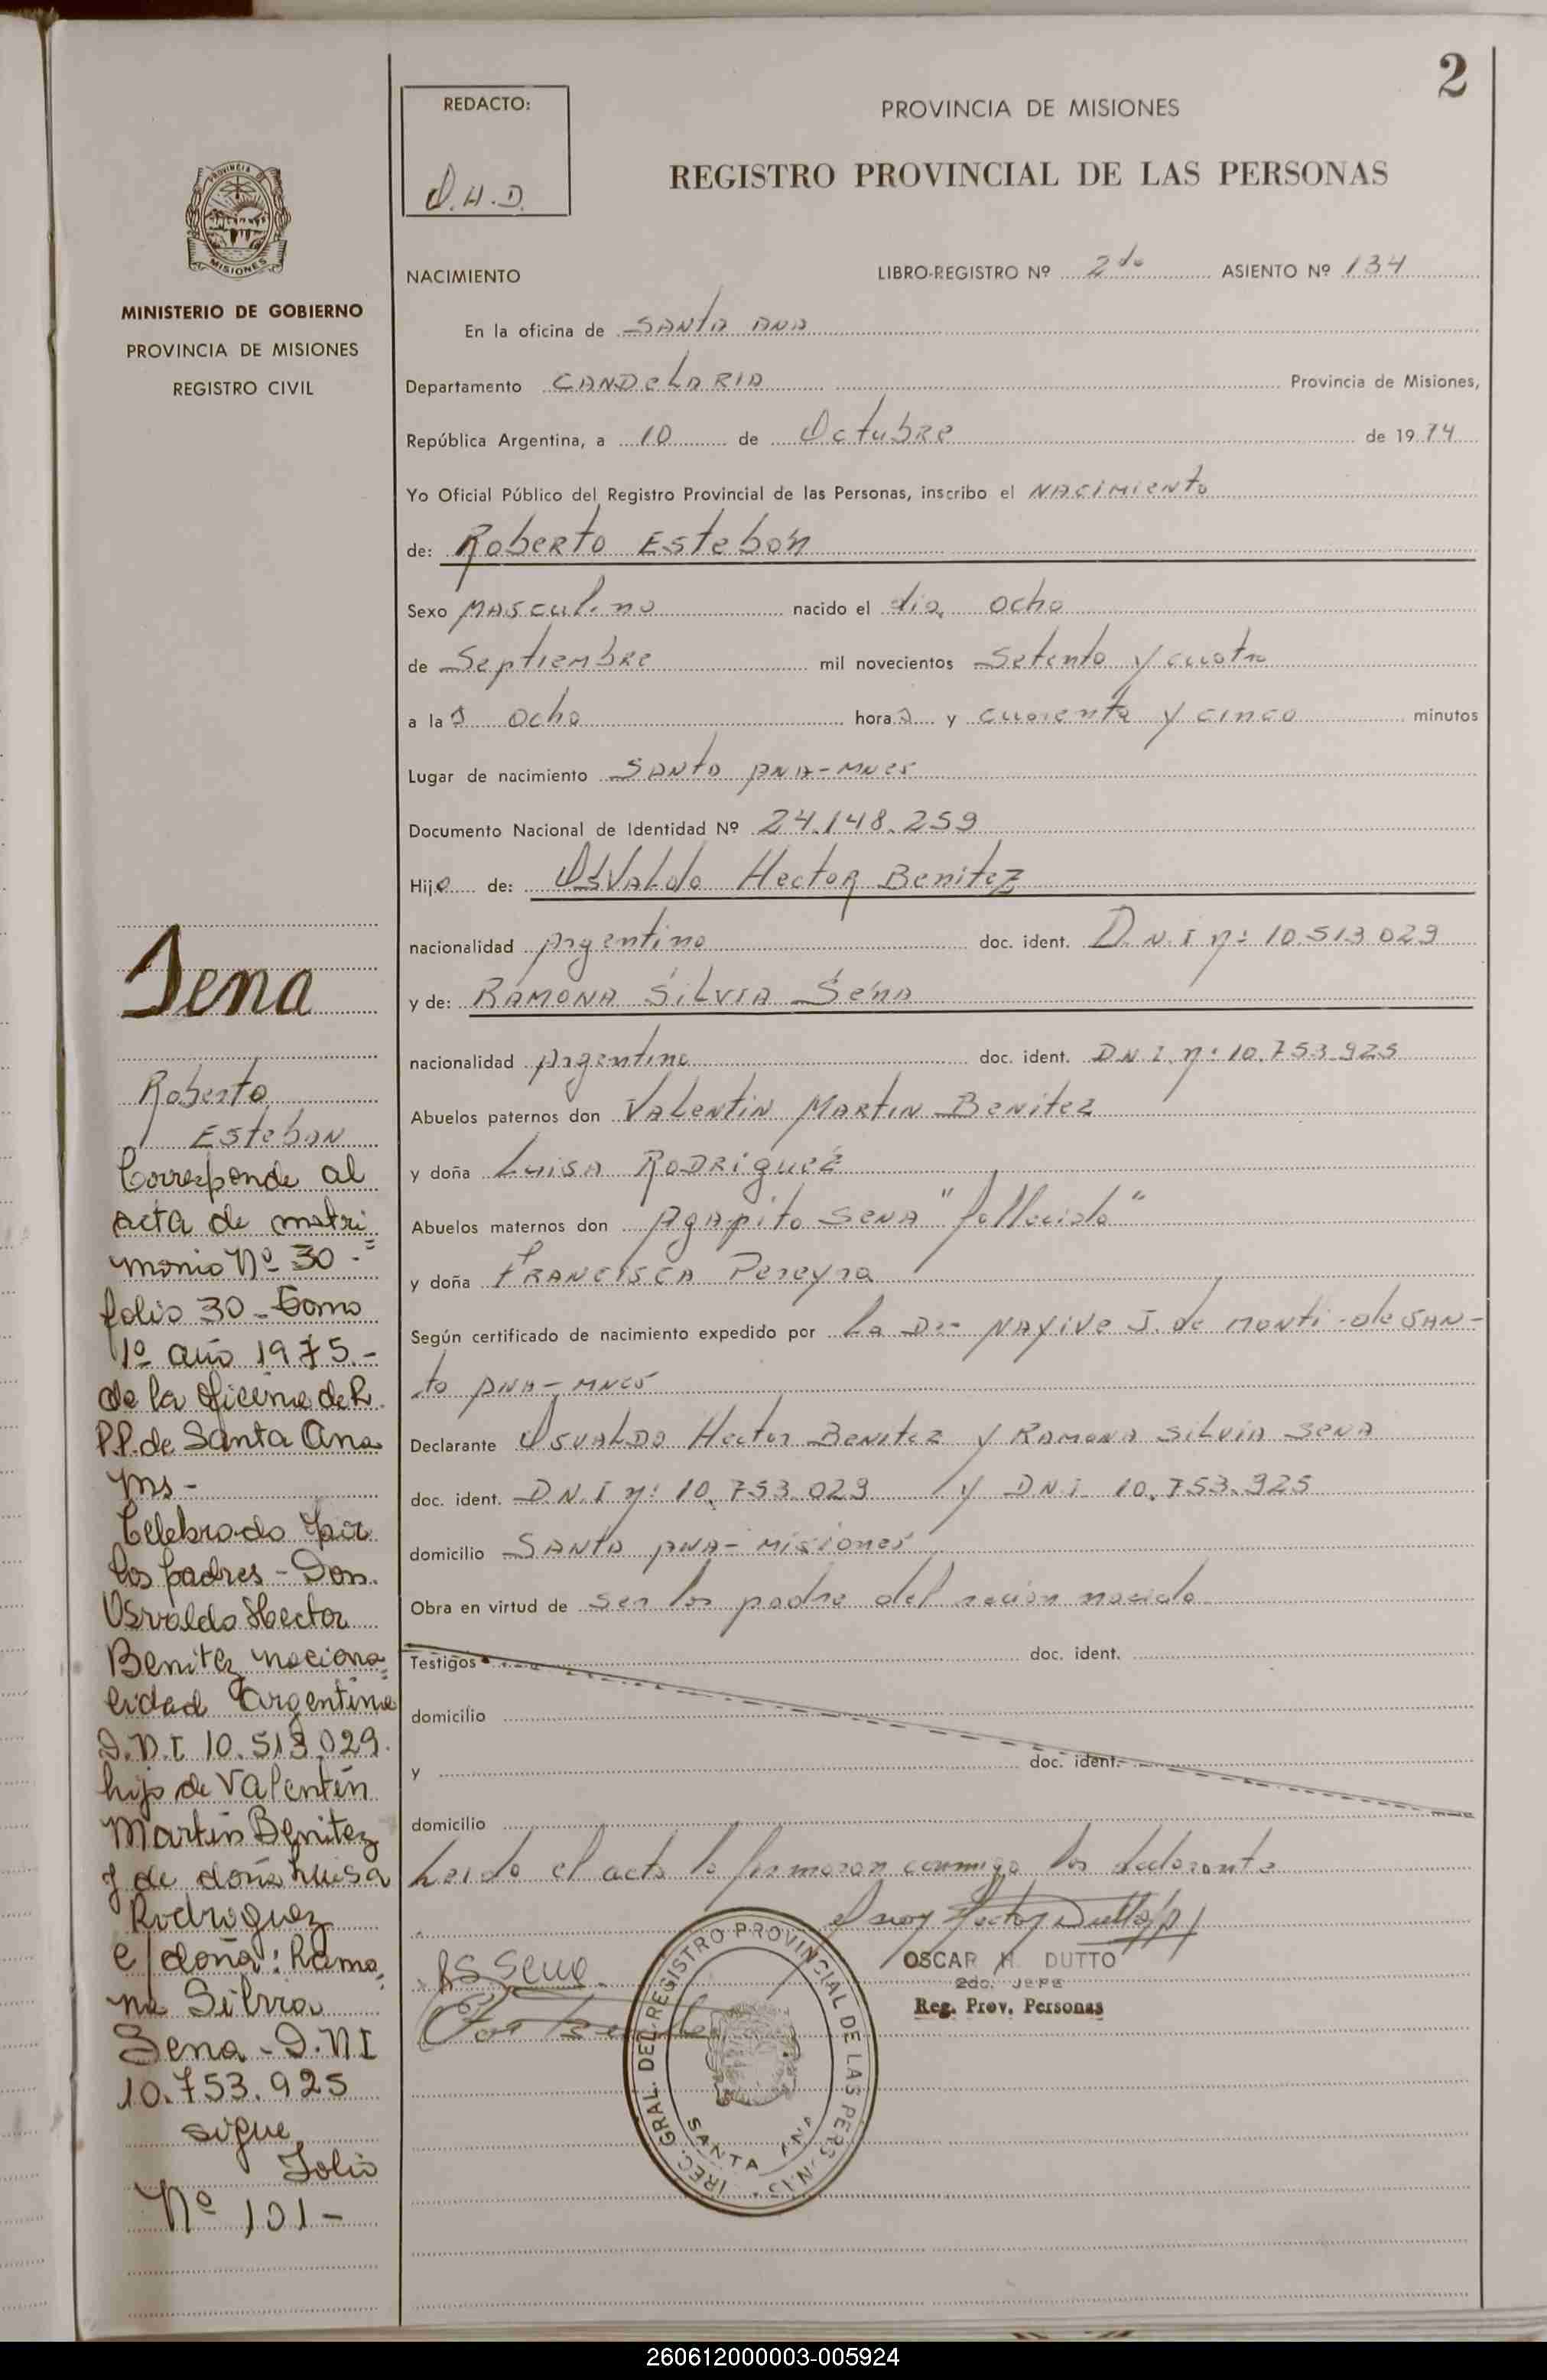 2
REDACTO:
O.H.D.
PROVINCIA DE MISIONES
REGISTRO PROVINCIAL DE LAS PERSONAS
PROVINCIA D
MISIONES
MINISTERIO DE GOBIERNO
PROVINCIA DE MISIONES
REGISTRO CIVIL
NACIMIENTO
LIBRO-REGISTRO Nº 2do ASIENTO Nº 134
En la oficina de SANta ANA
Departamento CANDeLaRIA Provincia de Misiones,
República Argentina, a 10 de Octubre de 1974
Yo Oficial Público del Registro Provincial de las Personas, inscribo el NACiMieNto
de: Roberto Esteban
Sexo MAsculino nacido el dia ocho
de Septiembre mil novecientos Setenta y cuatro
a las ocho horas y cuarenta y cinco minutos
Lugar de nacimiento SANta ANA-MNes
Documento Nacional de Identidad Nº 24.148.259
Hijo de: OsVaLdo Hector Benitez
nacionalidad Argentino doc. ident. D.N.I nº: 10.513.029
y de: RAMONA SiLVIA Sena
nacionalidad Argentina doc. ident. D.N.I. nº: 10.753.925
Abuelos paternos don VALentin MARtiN Benitez
y doña LuisA RoDRiguez
Abuelos maternos don AgApito SeNA "fallecido"
y doña FRANCISCA Pereyra
Según certificado de nacimiento expedido por La Dra NAYiVe J. de Monti-de SAN-
ta ANA-MNes
Declarante OsVALDO Hector BENitez y RAMONA SiLViA SeNA
doc. ident. D.N.I nº: 10.753.029 y DNI 10.753.925
domicilio SANta ANA-Misiones
Obra en virtud de ser los padre del recien nacido
Testigos doc. ident.
domicilio
y doc. ident.
domicilio
Leido el acta la firmaron conmigo los declarante
RS Sena.
OSCAR H. DUTTO
2do. JEFE
Reg. Prov. Personas
DIREC. GRAL. DEL REGISTRO PROVINCIAL DE LAS PERSONAS
SANTA ANA
Sena
Roberto
EstebAN
Corresponde al
acta de matri
monio Nº 30.=
folio 30-Tomo
1º año 1975.-
de la oficina de R.
P.P. de Santa Ana
Ms-
Celebrado por
los padres-Don.
Osvaldo Hector
Benitez naciona=
lidad Argentina
D.N.I 10.513.029.
hijo de Valentín
Martín Benitez
y de doña Luisa
Rodriguez
c/doña: Ramo=
na Silvia
Sena-D.NI
10.753.925
sigue
Folio
Nº 101-
260612000003-005924